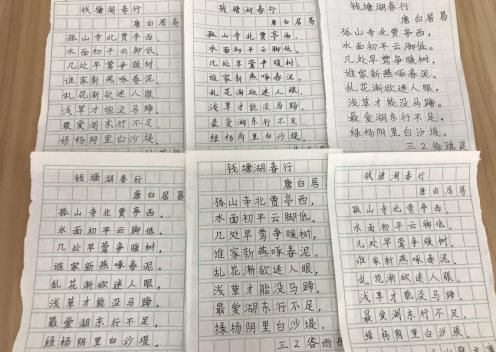 钱塘湖春行
唐白居易
孤山寺北贾亭西，
水面初平云脚低。
几处早莺争暖树，
谁家新燕啄春泥。
乱花渐欲迷人眼，
浅草才能没马蹄。
最爱湖东行不足，
绿杨阴里白沙堤。
钱塘湖春行
唐白居易
孤山寺北贾亭西，
水面初平云脚低。
几处早莺争暖树，
谁家新燕啄春泥。
乱花渐欲迷人眼，
浅草才能没马蹄。
最爱湖东行不足，
绿杨阴里白沙堤。
钱塘湖春行
唐白居易
孤山寺北贾亭西，
水面初平云脚低。
几处早莺争暖树，
谁家新燕啄春泥。
乱花渐欲迷人眼，
浅草才能没马蹄。
最爱湖东行不足，
绿杨阴里白沙堤。
三2
钱塘湖春行
唐白居易
孤山寺北贾亭西，
水面初平云脚低。
几处早莺争暖树，
谁家新燕啄春泥。
乱花渐欲迷人眼，
浅草才能没马蹄。
最爱湖东行不足，
绿杨阴里白沙堤。
钱塘湖春行
唐白居易
孤山寺北贾亭西，
水面初平云脚低。
几处早莺争暖树，
谁家新燕啄春泥。
乱花渐欲迷人眼，
浅草才能没马蹄。
最爱湖东行不足，
绿杨阴里白沙堤。
三2
钱塘湖春行
唐白居易
孤山寺北贾亭西，
水面初平云脚低。
几处早莺争暖树，
谁家新燕啄春泥。
乱花渐欲迷人眼，
浅草才能没马蹄。
最爱湖东行不足，
绿杨阴里白沙堤。